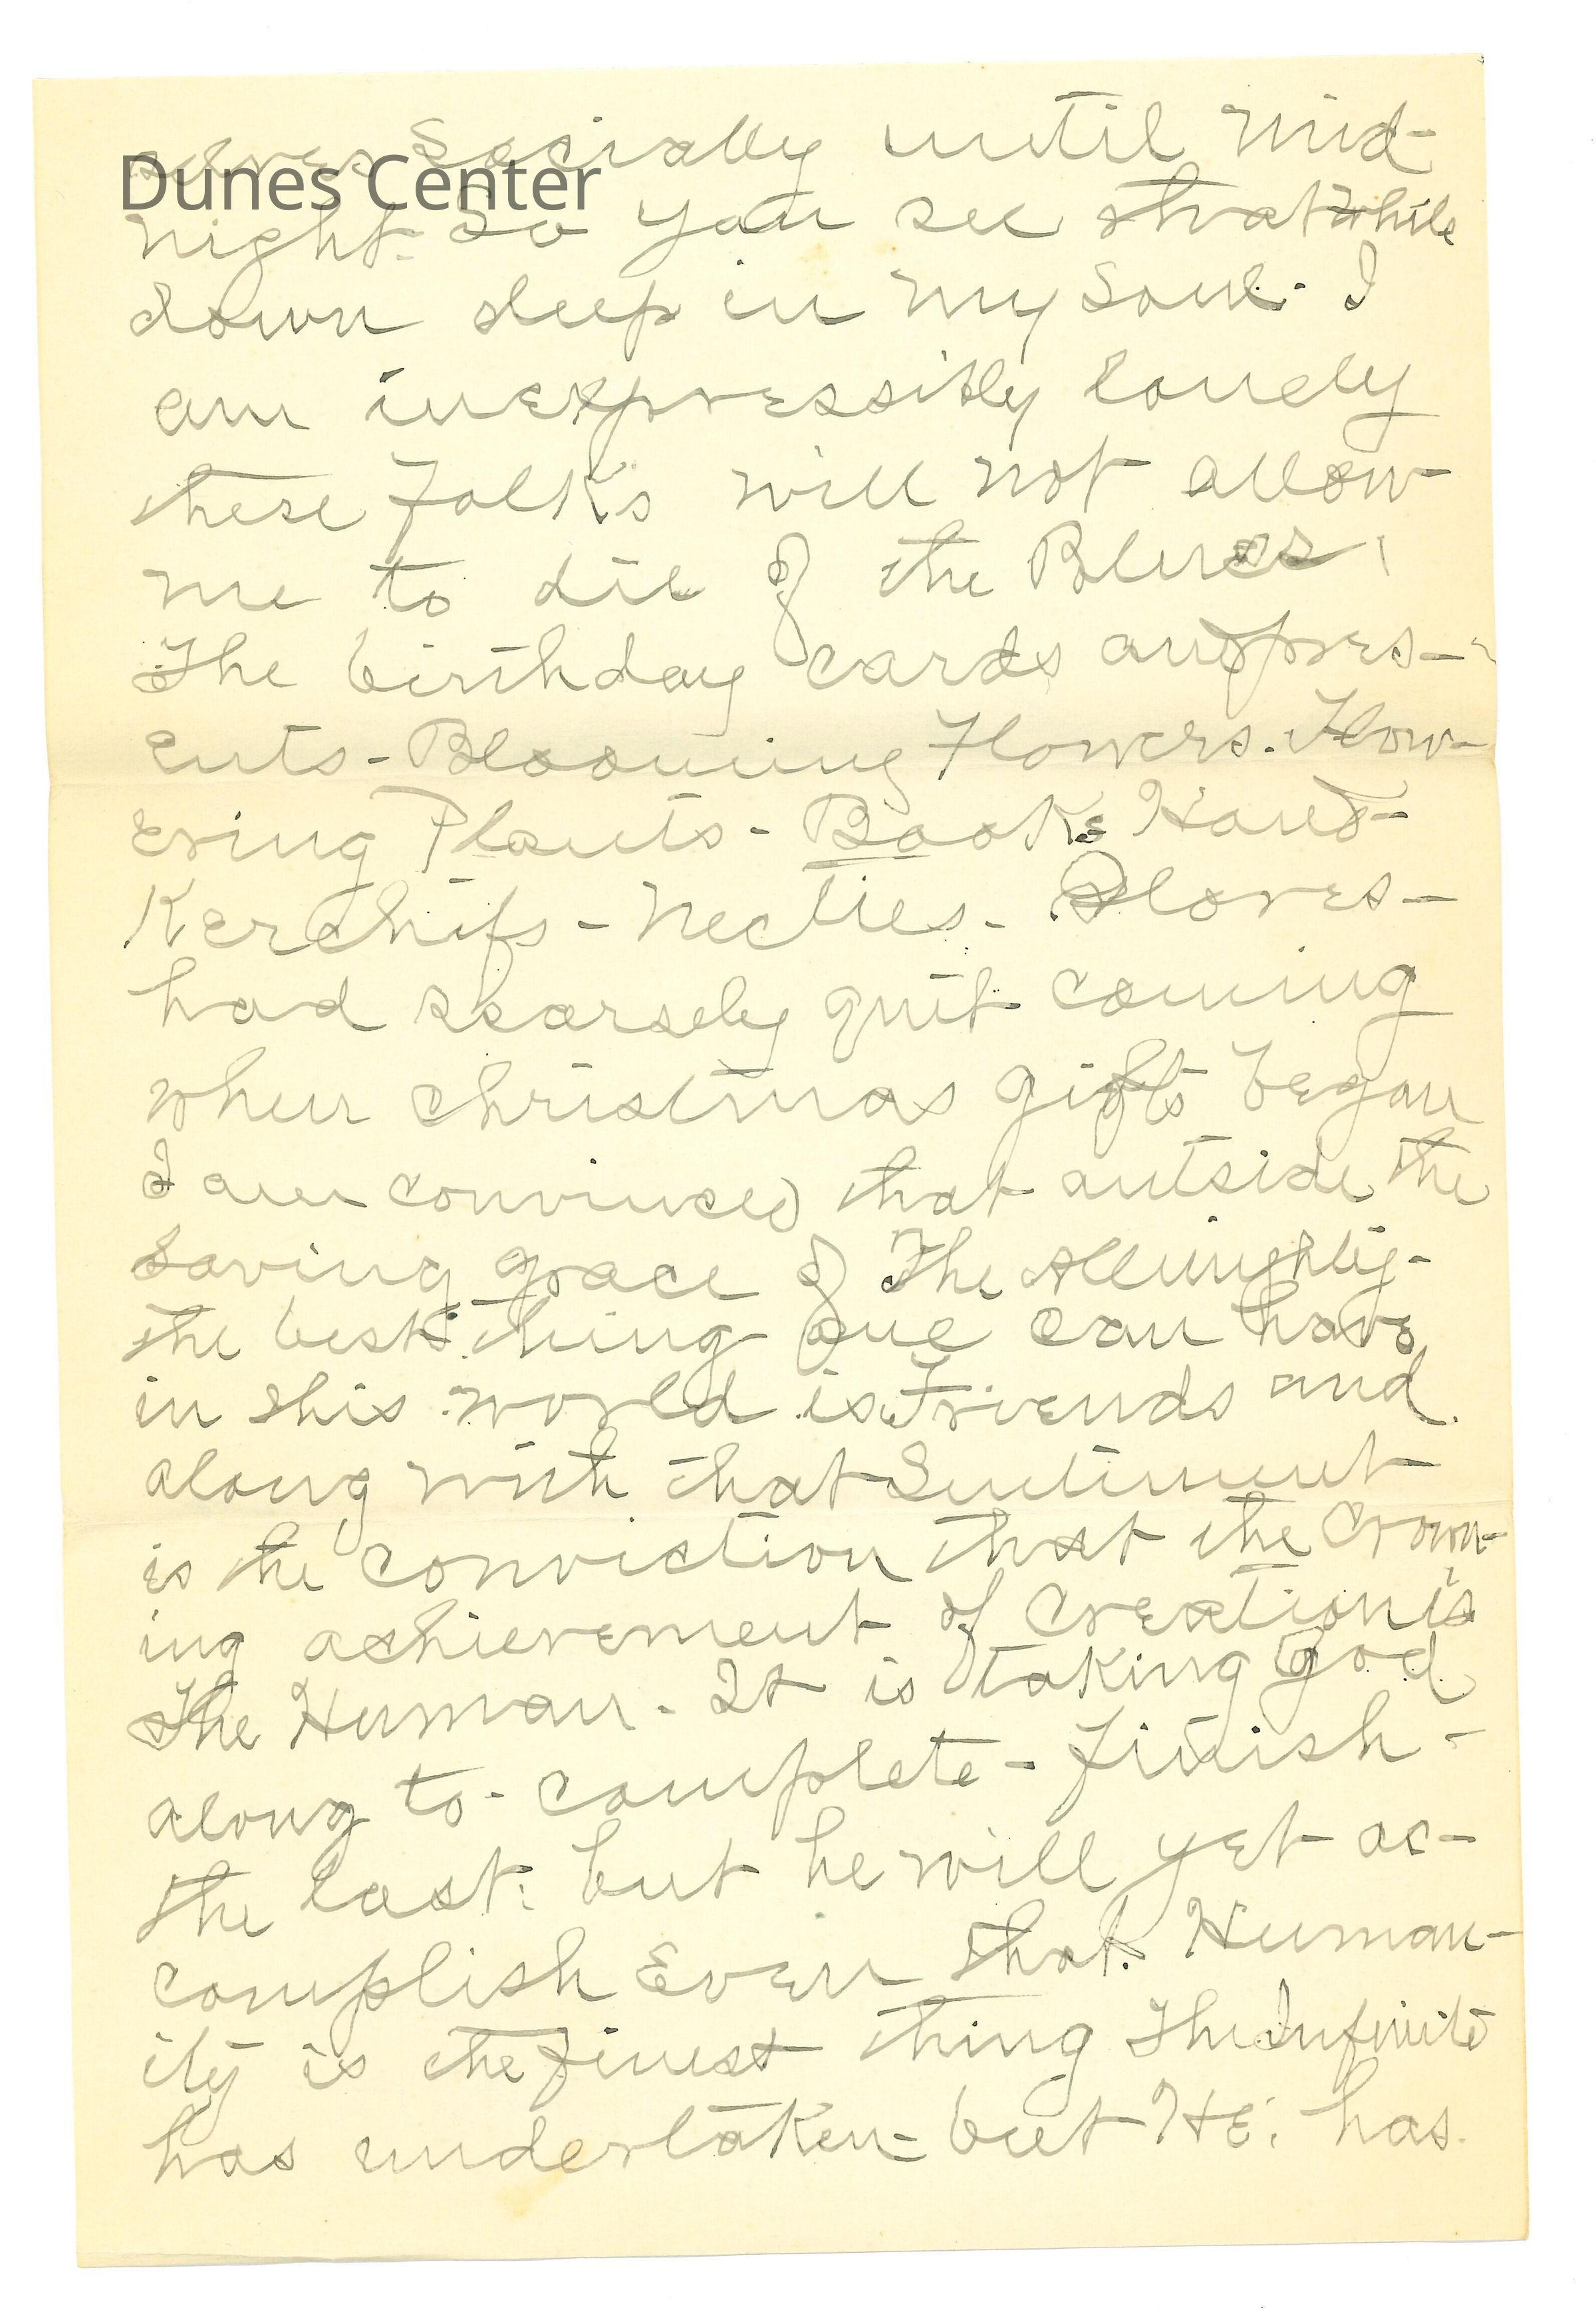 Dunes Center
selves Socially until mid-
night. So you see that while
down deep in my Soul. I
am inexpressibly lonely
these Folk's will not allow
me to die of the Blues!
The birthday cards and pres-
ents - Blooming Flowers. Flow-
ering Plants - Books Hand-
Kerchifs - Necties - Gloves -
had scarsely quit coming
when christmas gifts began
I am convinced that outside the
saving grace of The Allmighty -
the best thing one can have
in this world is Friends and
along with that Sentiment
is the conviction that the Crown-
ing achievement of Creation is
The Human. It is taking God
along to complete - finish -
the last: but he will yet ac-
complish Even that. Human-
ity is the finest thing The Infinite
has undertaken - but HE: has